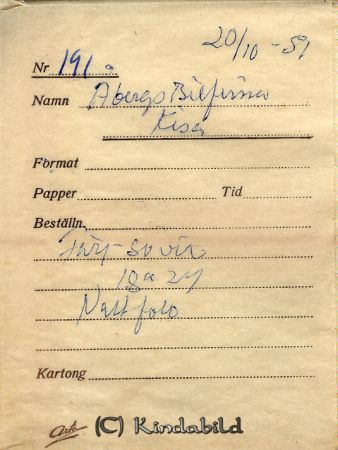 20/10 - 51
Nr 191
Namn Åbergs Bilfirma
Kisa
Format
Papper Tid
Beställn.
18 x 24
Nattfoto
Kartong
Ark (C) Kindabild